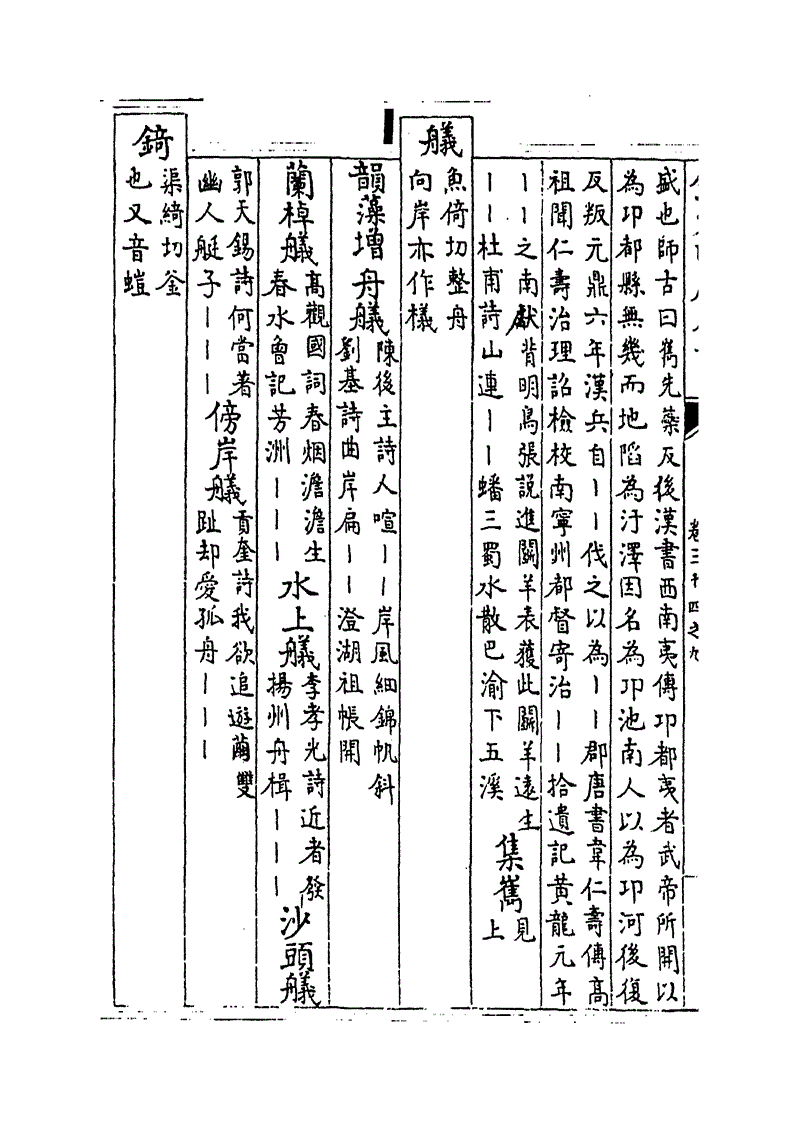 卷三十四之九
盛也師古曰雋先蘂反後漢書西南夷傳邛都夷者武帝所開以
為邛都縣無幾而地陷為汙澤因名為邛池南人以為邛河後復
反叛元鼎六年漢兵自丨丨伐之以為丨丨郡唐書韋仁壽傳高
祖聞仁壽治理詔檢校南寧州都督寄治丨丨拾遺記黃龍元年
丨丨之南獻背明鳥張說進鬭羊表獲此鬭羊遠生
丨丨杜甫詩山連丨丨蟠三蜀水散巴渝下五溪
集巂見上
艤魚倚切整舟
向岸亦作檥
韻藻增舟艤陳後主詩人喧丨丨岸風細錦帆斜
劉基詩曲岸扁丨丨澄湖祖帳開
蘭棹艤高觀國詞春烟澹澹生
春水曾記芳洲丨丨丨
水上艤李孝光詩近者發
揚州舟楫丨丨丨
沙頭艤
郭天錫詩何當著
幽人艇子丨丨丨
傍岸艤貢奎詩我欲追遊繭雙
趾却愛孤舟丨丨丨
錡渠綺切釜
也又音螘